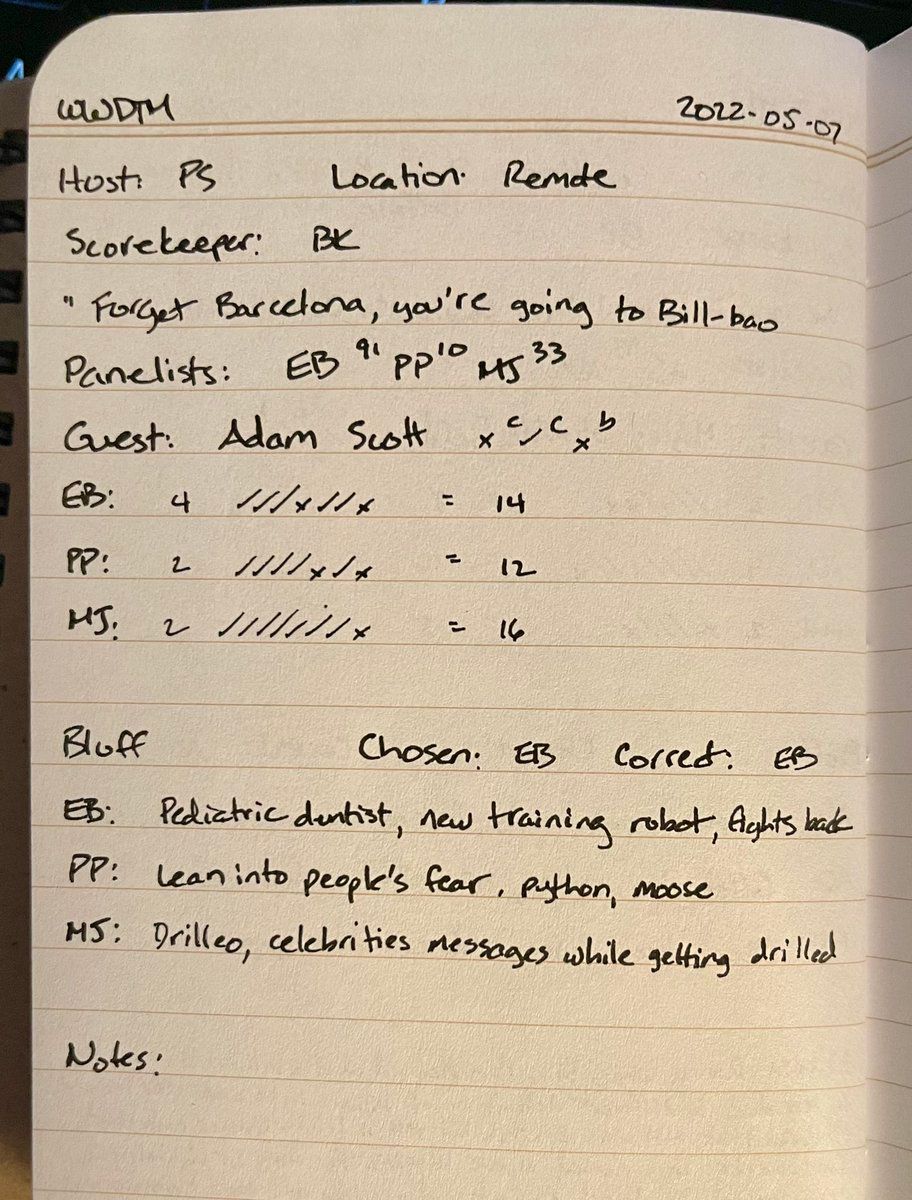 WWDTM 2022-05-07
Host: PS Location: Remote
Scorekeeper: BK
"Forget Barcelona, you're going to Bill-bao
Panelists: EB 91 PP 10 MJ 33
Guest: Adam Scott x c ✓ c x b
EB: 4 ///x//x = 14
PP: 2 ////x/x = 12
MJ: 2 ///////x = 16
Bluff Chosen: EB Correct: EB
EB: Pediatric dentist, new training robot, fights back
PP: Lean into people's fear, python, moose
MJ: Drilleo, celebrities messages while getting drilled
Notes: